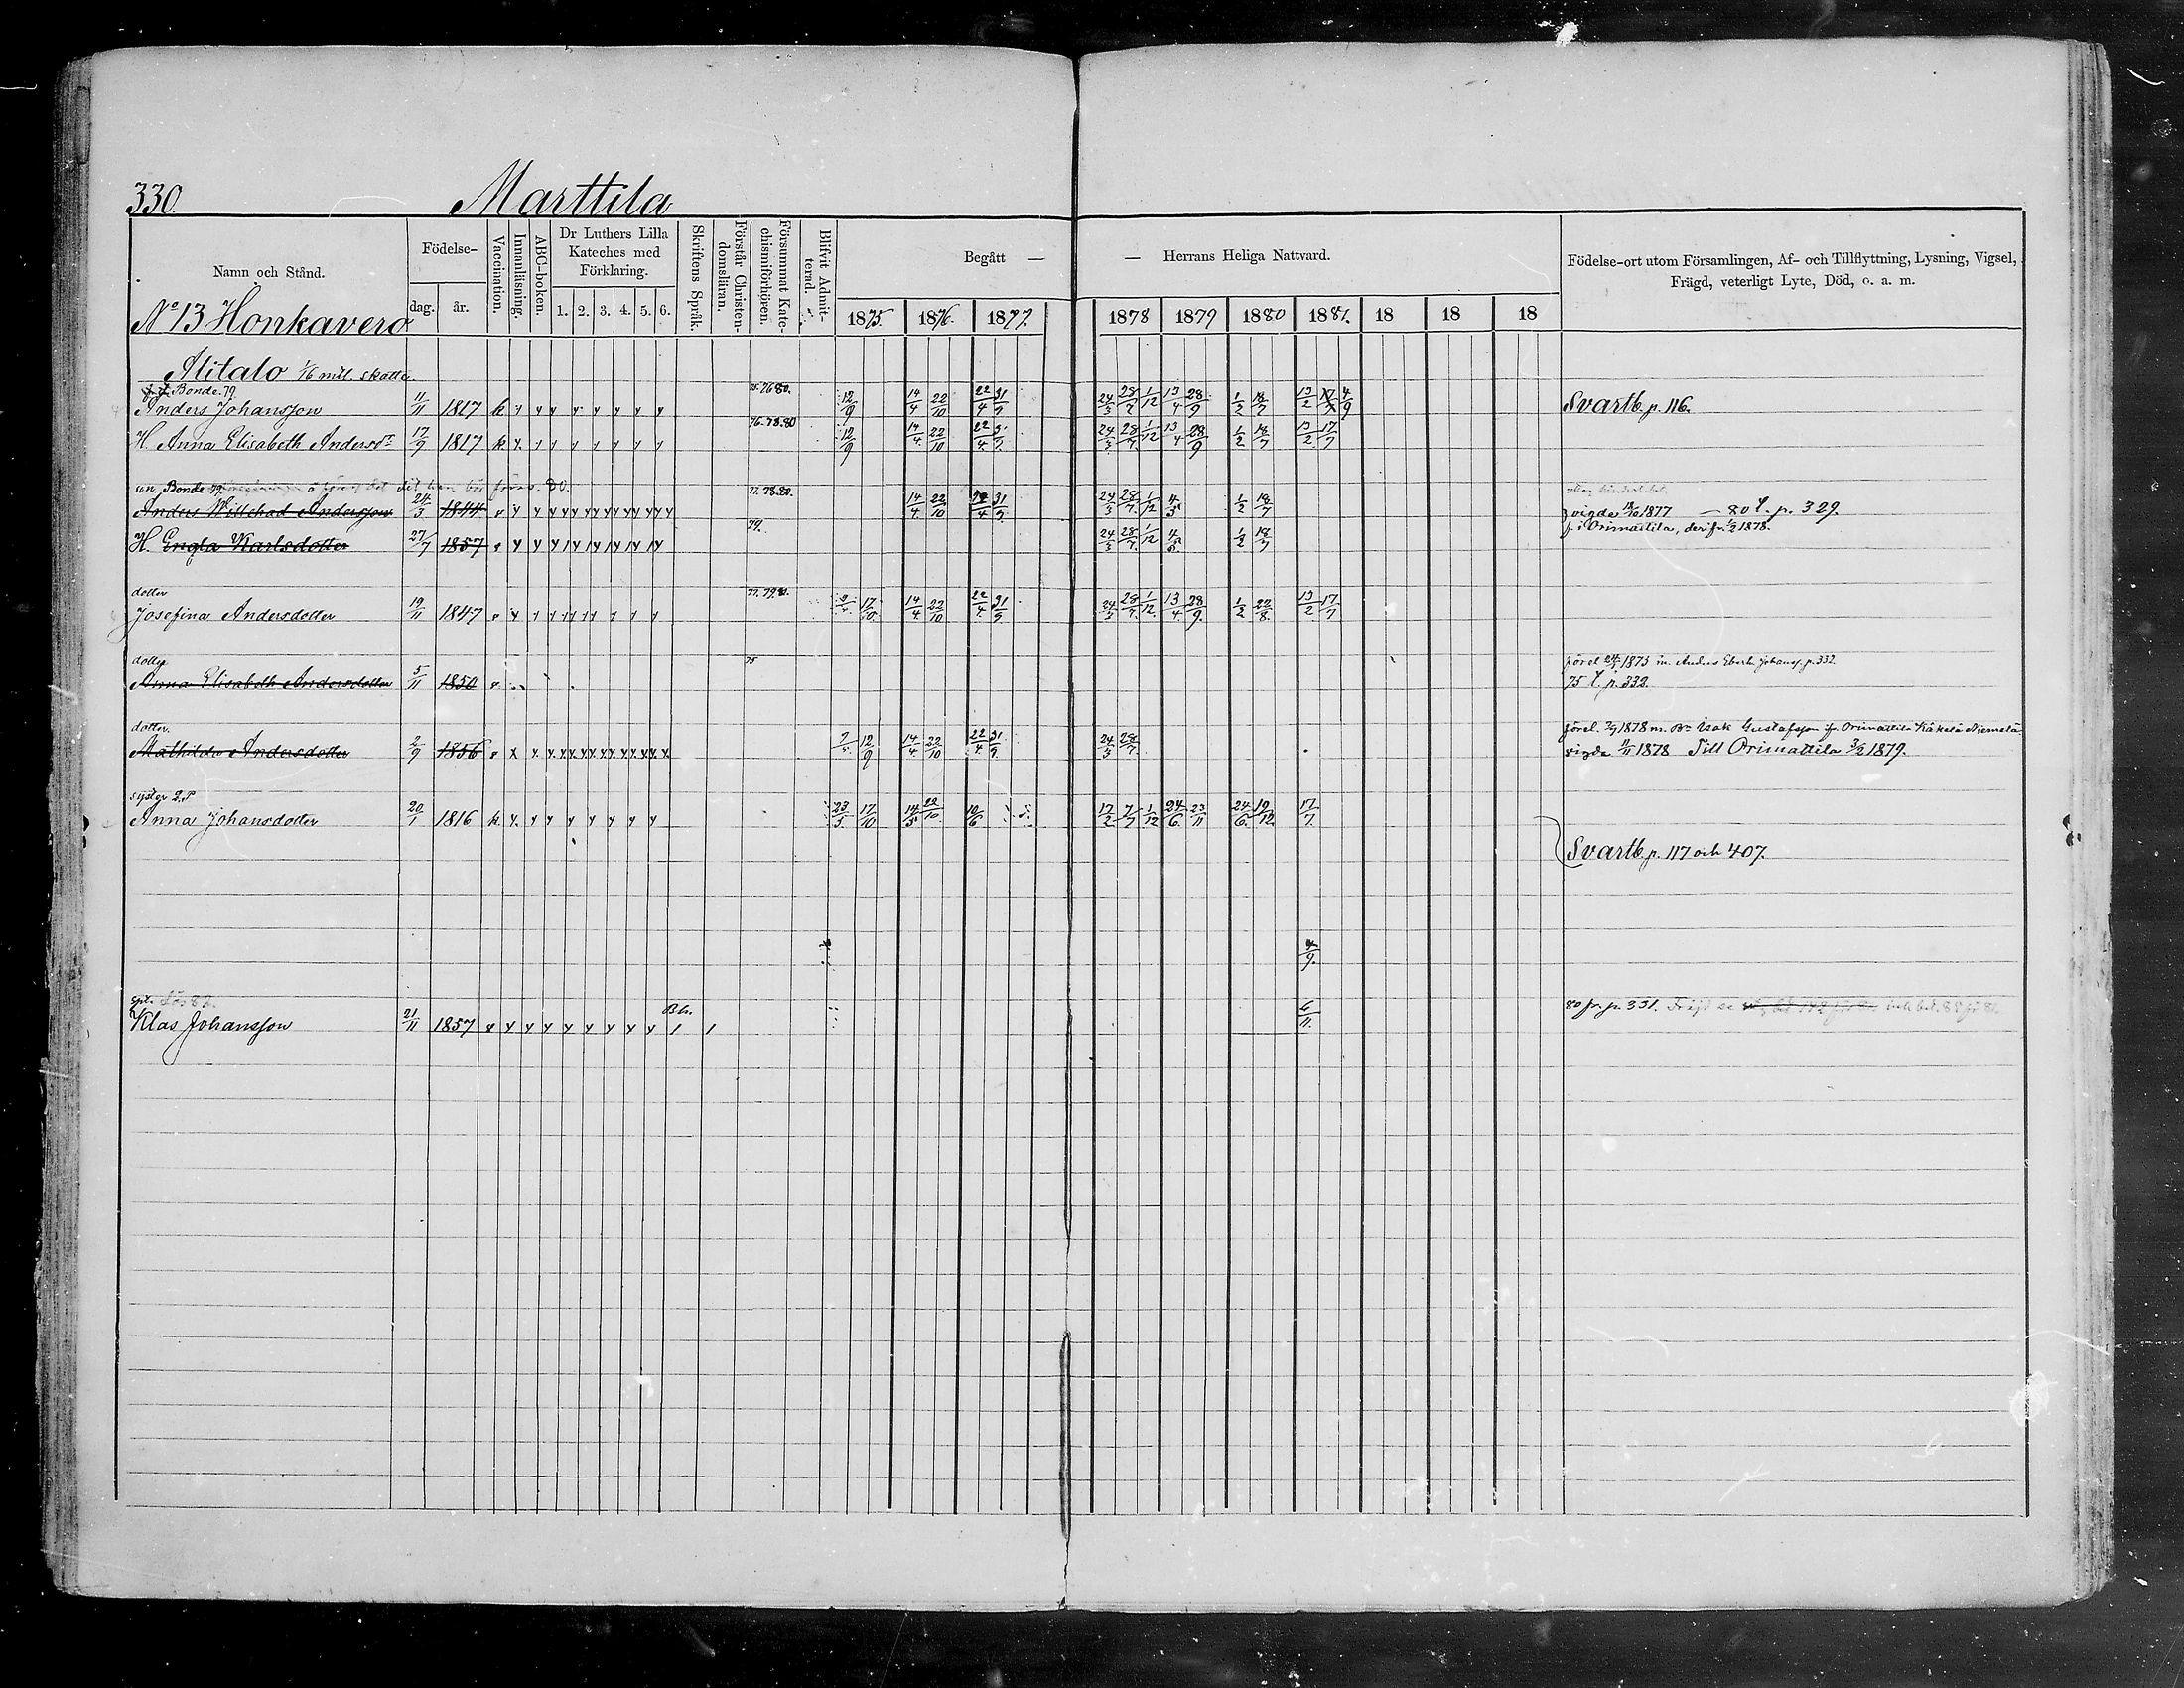 330. Marttila
Namn och Stånd. Födelse- dag. år. Vaccination. Innanläsning. ABC-boken. Dr Luthers Lilla Kateches med Förklaring. 1. 2. 3. 4. 5. 6. Skriftens Språk. Förstår Christendomsläran. Försummat Katechismiförhören. Blifvit Admitterad. Begått — — Herrans Heliga Nattvard. Födelse-ort utom Församlingen, Af- och Tillflyttning, Lysning, Vigsel, Frägd, veterligt Lyte, Död, o. a. m.
1875. 1876. 1877. 1878 1879 1880 1881. 18 18 18
No 13 Honkavero
Alitalo 1/6 mtl. skatte.
Bonde. 79. 76 80.
Anders Johansson 11/11 1817 k 12/9 14/4 22/10 22/4 31/9 24/3 28/7 1/12 13/4 28/9 1/2 18/7 13/2 17/7 4/9 Svartb. p. 116.
76. 78. 80
H. Anna Elisabeth Andersdr 17/9 1817 k 12/9 14/4 22/10 22/4 24/3 28/7 1/12 13/4 28/9 1/2 18/7 13/2 17/7
son. Bonde 79. 77. 78. 80.
Anders Willehad Andersson 24/3 1844 14/4 22/10 31/9 24/3 28/7 1/12 4/5 1/2 18/7 vigde 1877 — 80 t. p. 329.
79. f. i Orimattila, derifr. 1/2 1878.
H. Engla Karlsdotter 27/7 1857 24/3 28/7 1/12 4/5 1/2 18/7
dotter 77. 79.
Josefina Andersdotter 19/11 1847 17/10 14/4 22/10 22/4 31/9 24/3 28/7 1/12 13/4 28/9 1/2 22/8 13/2 17/7
dotter 75 förel 1875 m. Anders Eberh. Johanss. p. 332.
Anna Elisabeth Andersdotter 5/11 1850 75 t. p. 332.
dotter. förel. 1878 m. Isak Gustafsson fr. Orimattila Käkelä Niemelä
Mathilda Andersdotter 2/9 1856 12/9 14/4 22/10 22/4 31/9 24/3 28/7 vigde 11/11 1878 Till Orimattila 3/2 1879.
syster
Anna Johansdotter 20/1 1816 k 23/5 17/10 14/5 22/10 10/6 17/2 7/7 1/12 24/6 23/11 24/6 19/12 17/7
Svartb. p. 117 och 407.
4/9
spt. 80 fr. p. 331.
Klas Johansson 21/11 1857 6/11